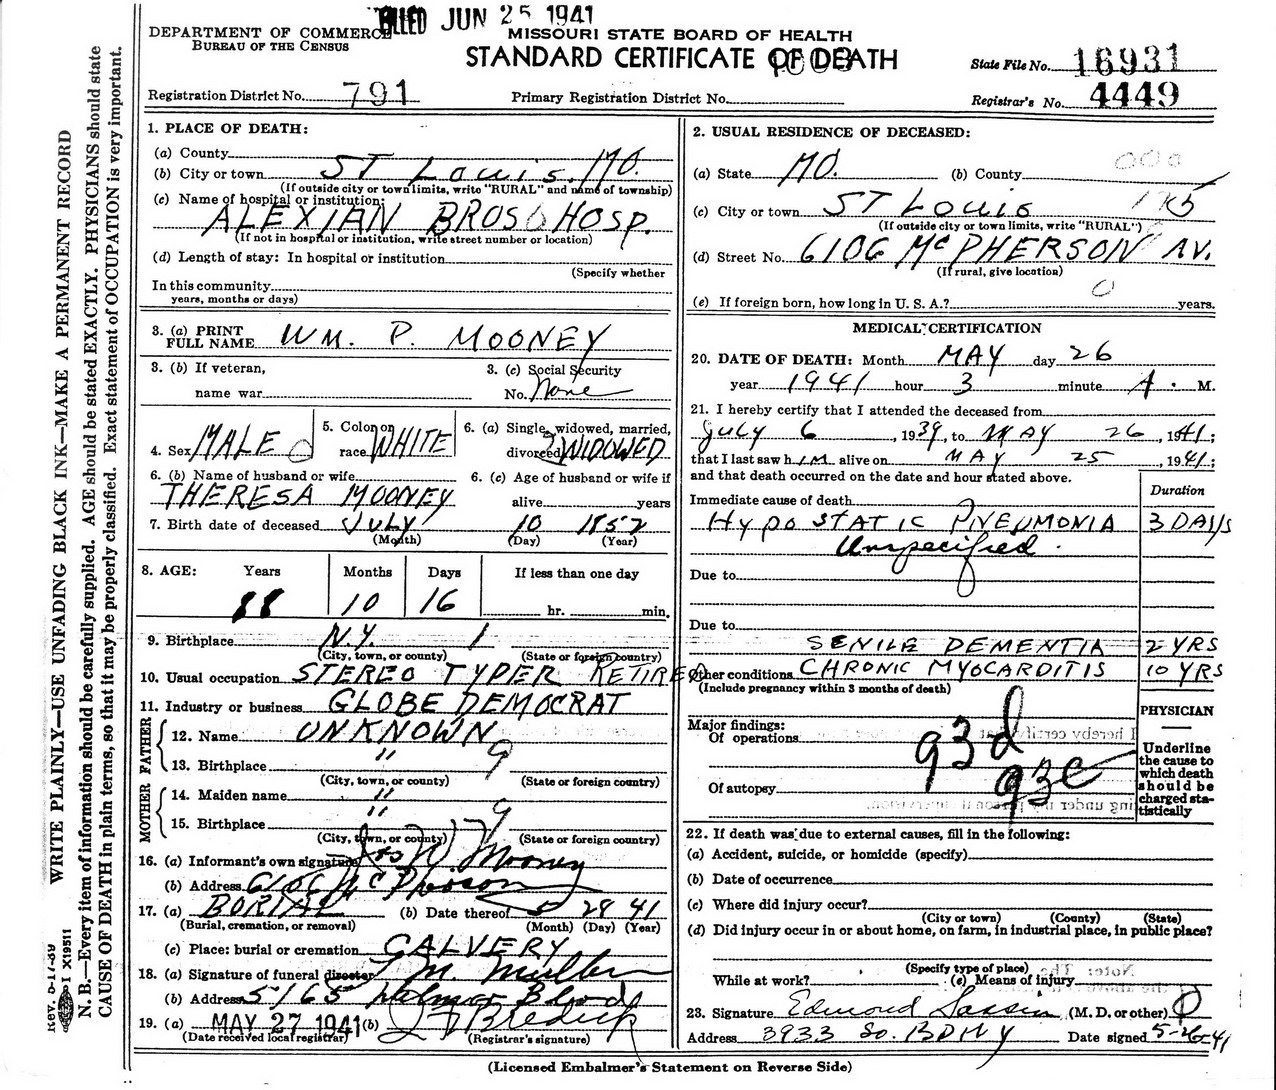 FILED JUN 25 1941
DEPARTMENT OF COMMERCE
BUREAU OF THE CENSUS
MISSOURI STATE BOARD OF HEALTH
STANDARD CERTIFICATE OF DEATH
1003
State File No. 16931
Registration District No. 791
Primary Registration District No.
Registrar's No. 4449
WRITE PLAINLY—USE UNFADING BLACK INK—MAKE A PERMANENT RECORD
N. B.—Every item of information should be carefully supplied. AGE should be stated EXACTLY. PHYSICIANS should state
CAUSE OF DEATH in plain terms, so that it may be properly classified. Exact statement of OCCUPATION is very important.
X19511
1. PLACE OF DEATH:
(a) County
(b) City or town ST LOUIS, MO.
(If outside city or town limits, write "RURAL" and name of township)
(c) Name of hospital or institution:
ALEXIAN BROS HOSP.
(If not in hospital or institution, write street number or location)
(d) Length of stay: In hospital or institution
(Specify whether
In this community
years, months or days)
3. (a) PRINT
FULL NAME WM. P. MOONEY
3. (b) If veteran,
name war
3. (c) Social Security
No. None
4. Sex MALE 0
5. Color or
race WHITE
6. (a) Single, widowed, married,
divorced WIDOWED
6. (b) Name of husband or wife
THERESA MOONEY
6. (c) Age of husband or wife if
alive years
7. Birth date of deceased JULY 10 1852
(Month) (Day) (Year)
8. AGE: Years Months Days If less than one day
88 10 16 hr. min.
9. Birthplace N.Y. 1
(City, town, or county) (State or foreign country)
10. Usual occupation STEREO TYPER RETIRED
11. Industry or business GLOBE DEMOCRAT
FATHER
12. Name UNKNOWN
13. Birthplace " 9
(City, town, or county) (State or foreign country)
MOTHER
14. Maiden name "
15. Birthplace " 9
(City, town, or county) (State or foreign country)
16. (a) Informant's own signature Jos W. Mooney
(b) Address 6106 McPherson
17. (a) BURIAL (b) Date thereof 5 28 41
(Burial, cremation, or removal) (Month) (Day) (Year)
(c) Place: burial or cremation CALVERY
18. (a) Signature of funeral director M. Mullen
(b) Address 5165 Delmar Blvd
19. (a) MAY 27 1941 (b) J F Bredeck
(Date received local registrar) (Registrar's signature)
2. USUAL RESIDENCE OF DECEASED:
000
(a) State MO. (b) County
(c) City or town ST LOUIS
(If outside city or town limits, write "RURAL")
(d) Street No. 6106 McPHERSON AV.
(If rural, give location)
0
(e) If foreign born, how long in U. S. A.? years.
MEDICAL CERTIFICATION
20. DATE OF DEATH: Month MAY day 26
year 1941 hour 3 minute A. M.
21. I hereby certify that I attended the deceased from
July 6, 1939, to MAY 26, 1941;
that I last saw hIM alive on MAY 25, 1941;
and that death occurred on the date and hour stated above.
Duration
Immediate cause of death
HypoSTATIC PNEUMONIA 3 DAYS
Unspecified.
Due to
Due to
SENILE DEMENTIA 2 YRS
Other conditions CHRONIC MYOCARDITIS 10 YRS
(Include pregnancy within 3 months of death)
Major findings:
Of operations
93d
93c
Of autopsy
PHYSICIAN
Underline
the cause to
which death
should be
charged sta-
tistically
22. If death was due to external causes, fill in the following:
(a) Accident, suicide, or homicide (specify)
(b) Date of occurrence
(c) Where did injury occur?
(City or town) (County) (State)
(d) Did injury occur in or about home, on farm, in industrial place, in public place?
(Specify type of place)
While at work? (e) Means of injury
23. Signature Edmond Sassin (M. D. or other)
Address 3933 So. BDWY Date signed 5-26-41
(Licensed Embalmer's Statement on Reverse Side)